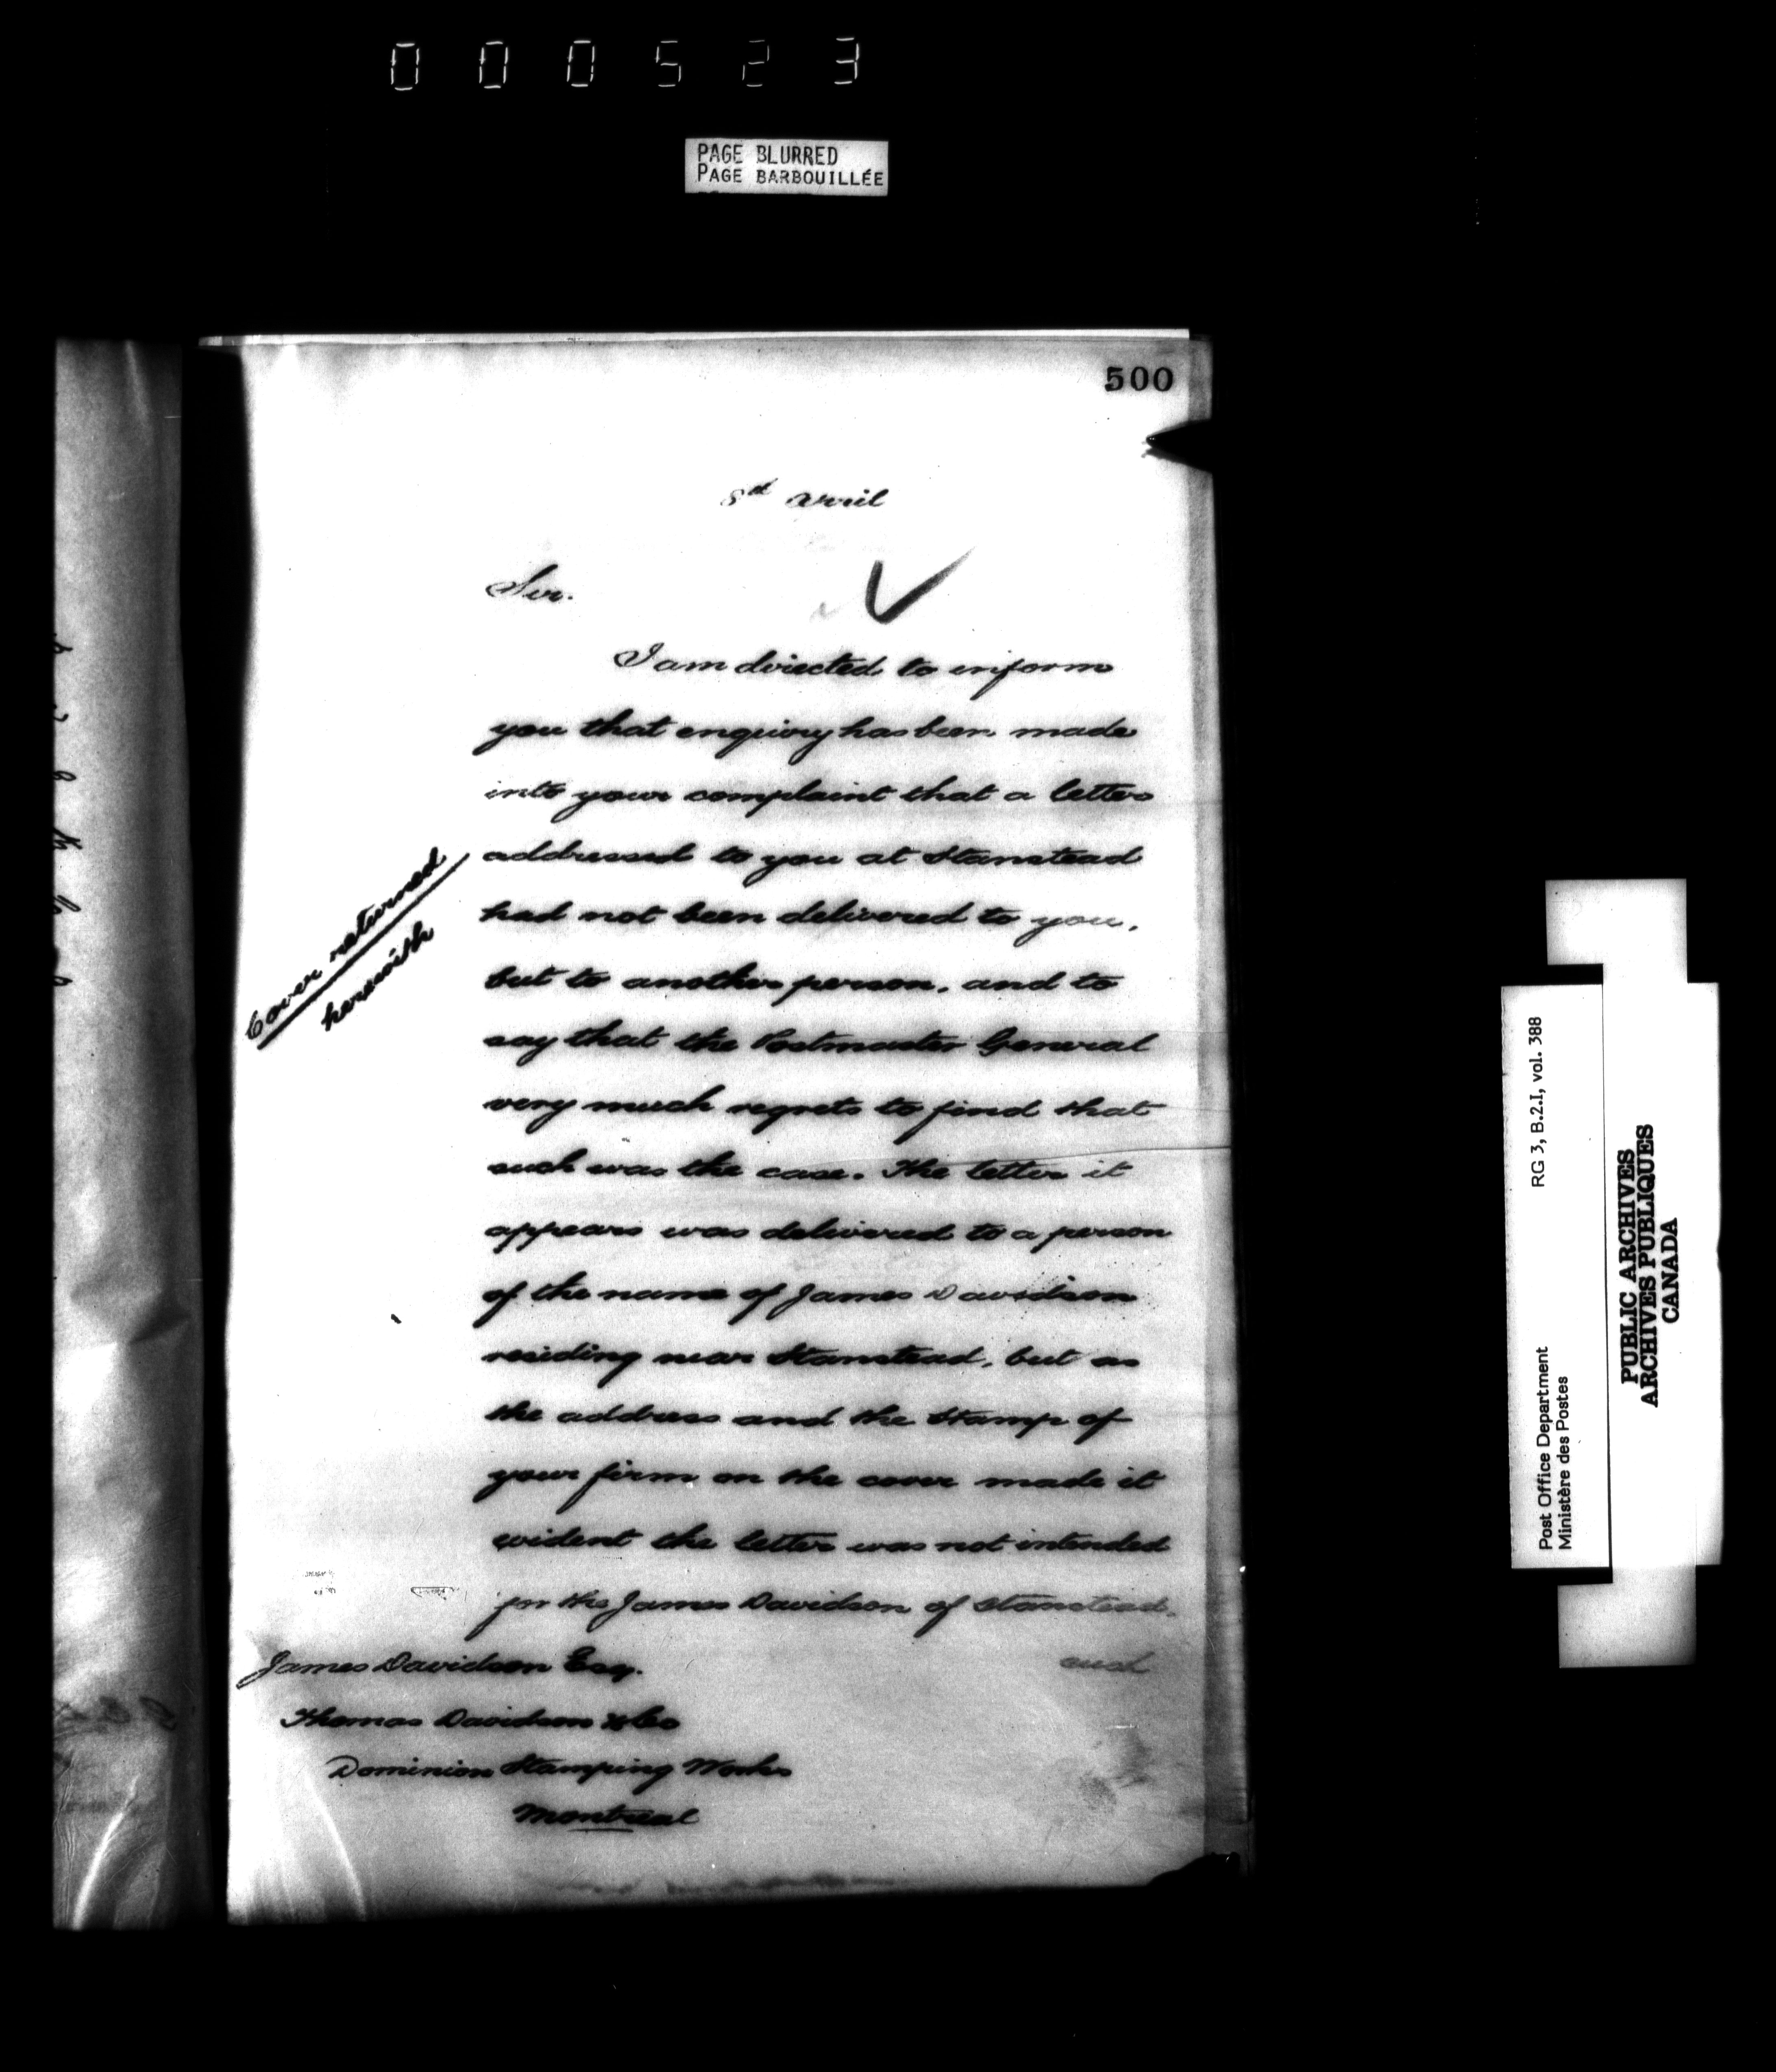 000523
PAGE BLURRED
PAGE BARBOUILLÉE
500
April
Sir.
I am directed to inform
you that enquiry has been made
into your complaint that a letter
addressed to you at Stanstead
had not been delivered to you,
but to another person, and to
say that the Postmaster General
very much regrets to find that
such was the case. The letter it
appears was delivered to a person
of the name of James Davidson
residing near Stanstead, but as
the address and the Stamp of
your firm on the cover made it
evident the letter was not intended
for the James Davidson of Stanstead.
such
Cover returned
herewith
James Davidson Esq.
Thomas Davidson & Co
Dominion Stamping Works
Montreal
Post Office Department RG 3, B.2.I, vol. 388
Ministère des Postes
PUBLIC ARCHIVES
ARCHIVES PUBLIQUES
CANADA